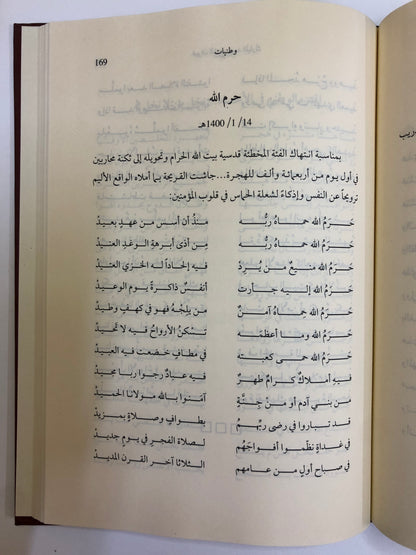 وطنيات
169
حرم الله
14/ 1/ 1400هـ
بمناسبة انتهاك الفئة المخطئة قدسية بيت الله الحرام وتحويله إلى ثكنة محاربين
في أول يوم من أربعمائة وألف للهجرة...جاشت القريحة بما أملاه الواقع الأليم
ترويحاً عن النفس وإذكاءً لشعلة الحماس في قلوب المؤمنين:
حَرَمُ الله حماهُ ربُّـه مـنـذُ أن أسـس مـن عـهدٍ بعيدْ
حَرَمُ الله حماهُ ربُّـه مـن أذى أبـرهـةِ الوغـدِ العنيدْ
حَرَمُ الله منيعٌ مـن يُـرِدْ فـيـه إلحـاداً لـه الخـزي العتيدْ
حَرَمُ الله إليـه جـأرت أنفـسٌ ذاكـرةٌ يـوم الوعيدْ
حَرَمُ الله حماهُ آمـنٌ مـن يلجْـهُ فهـو في كـهفٍ وطيدْ
حَرَمُ الله ومـا أعظمَـه تسكـنُ الأرواحُ فيـه لا تحيدْ
حَرَمُ الله حمـى كعبتـه في مطـافٍ خضـعت فيـه العبيدْ
فيـه أمـلاكٌ كـرامٌ طهـرٌ فيـه عبـادٌ رجـوا ربـا مجيدْ
مـن بنـي آدم أو مـن جِنـةٍ آمنوا بـالله مـولانـا الحميدْ
قـد تبـاروا في رضى ربهم بطـوافٍ وصـلاةٍ بمـزيدْ
في غـداةٍ نظّمـوا أفواجَهُـم لصلاة الفجـر في يـومٍ جديدْ
في صباح أولِ مـن عـامهم الثلاثا آخـر القـرن المديدْ